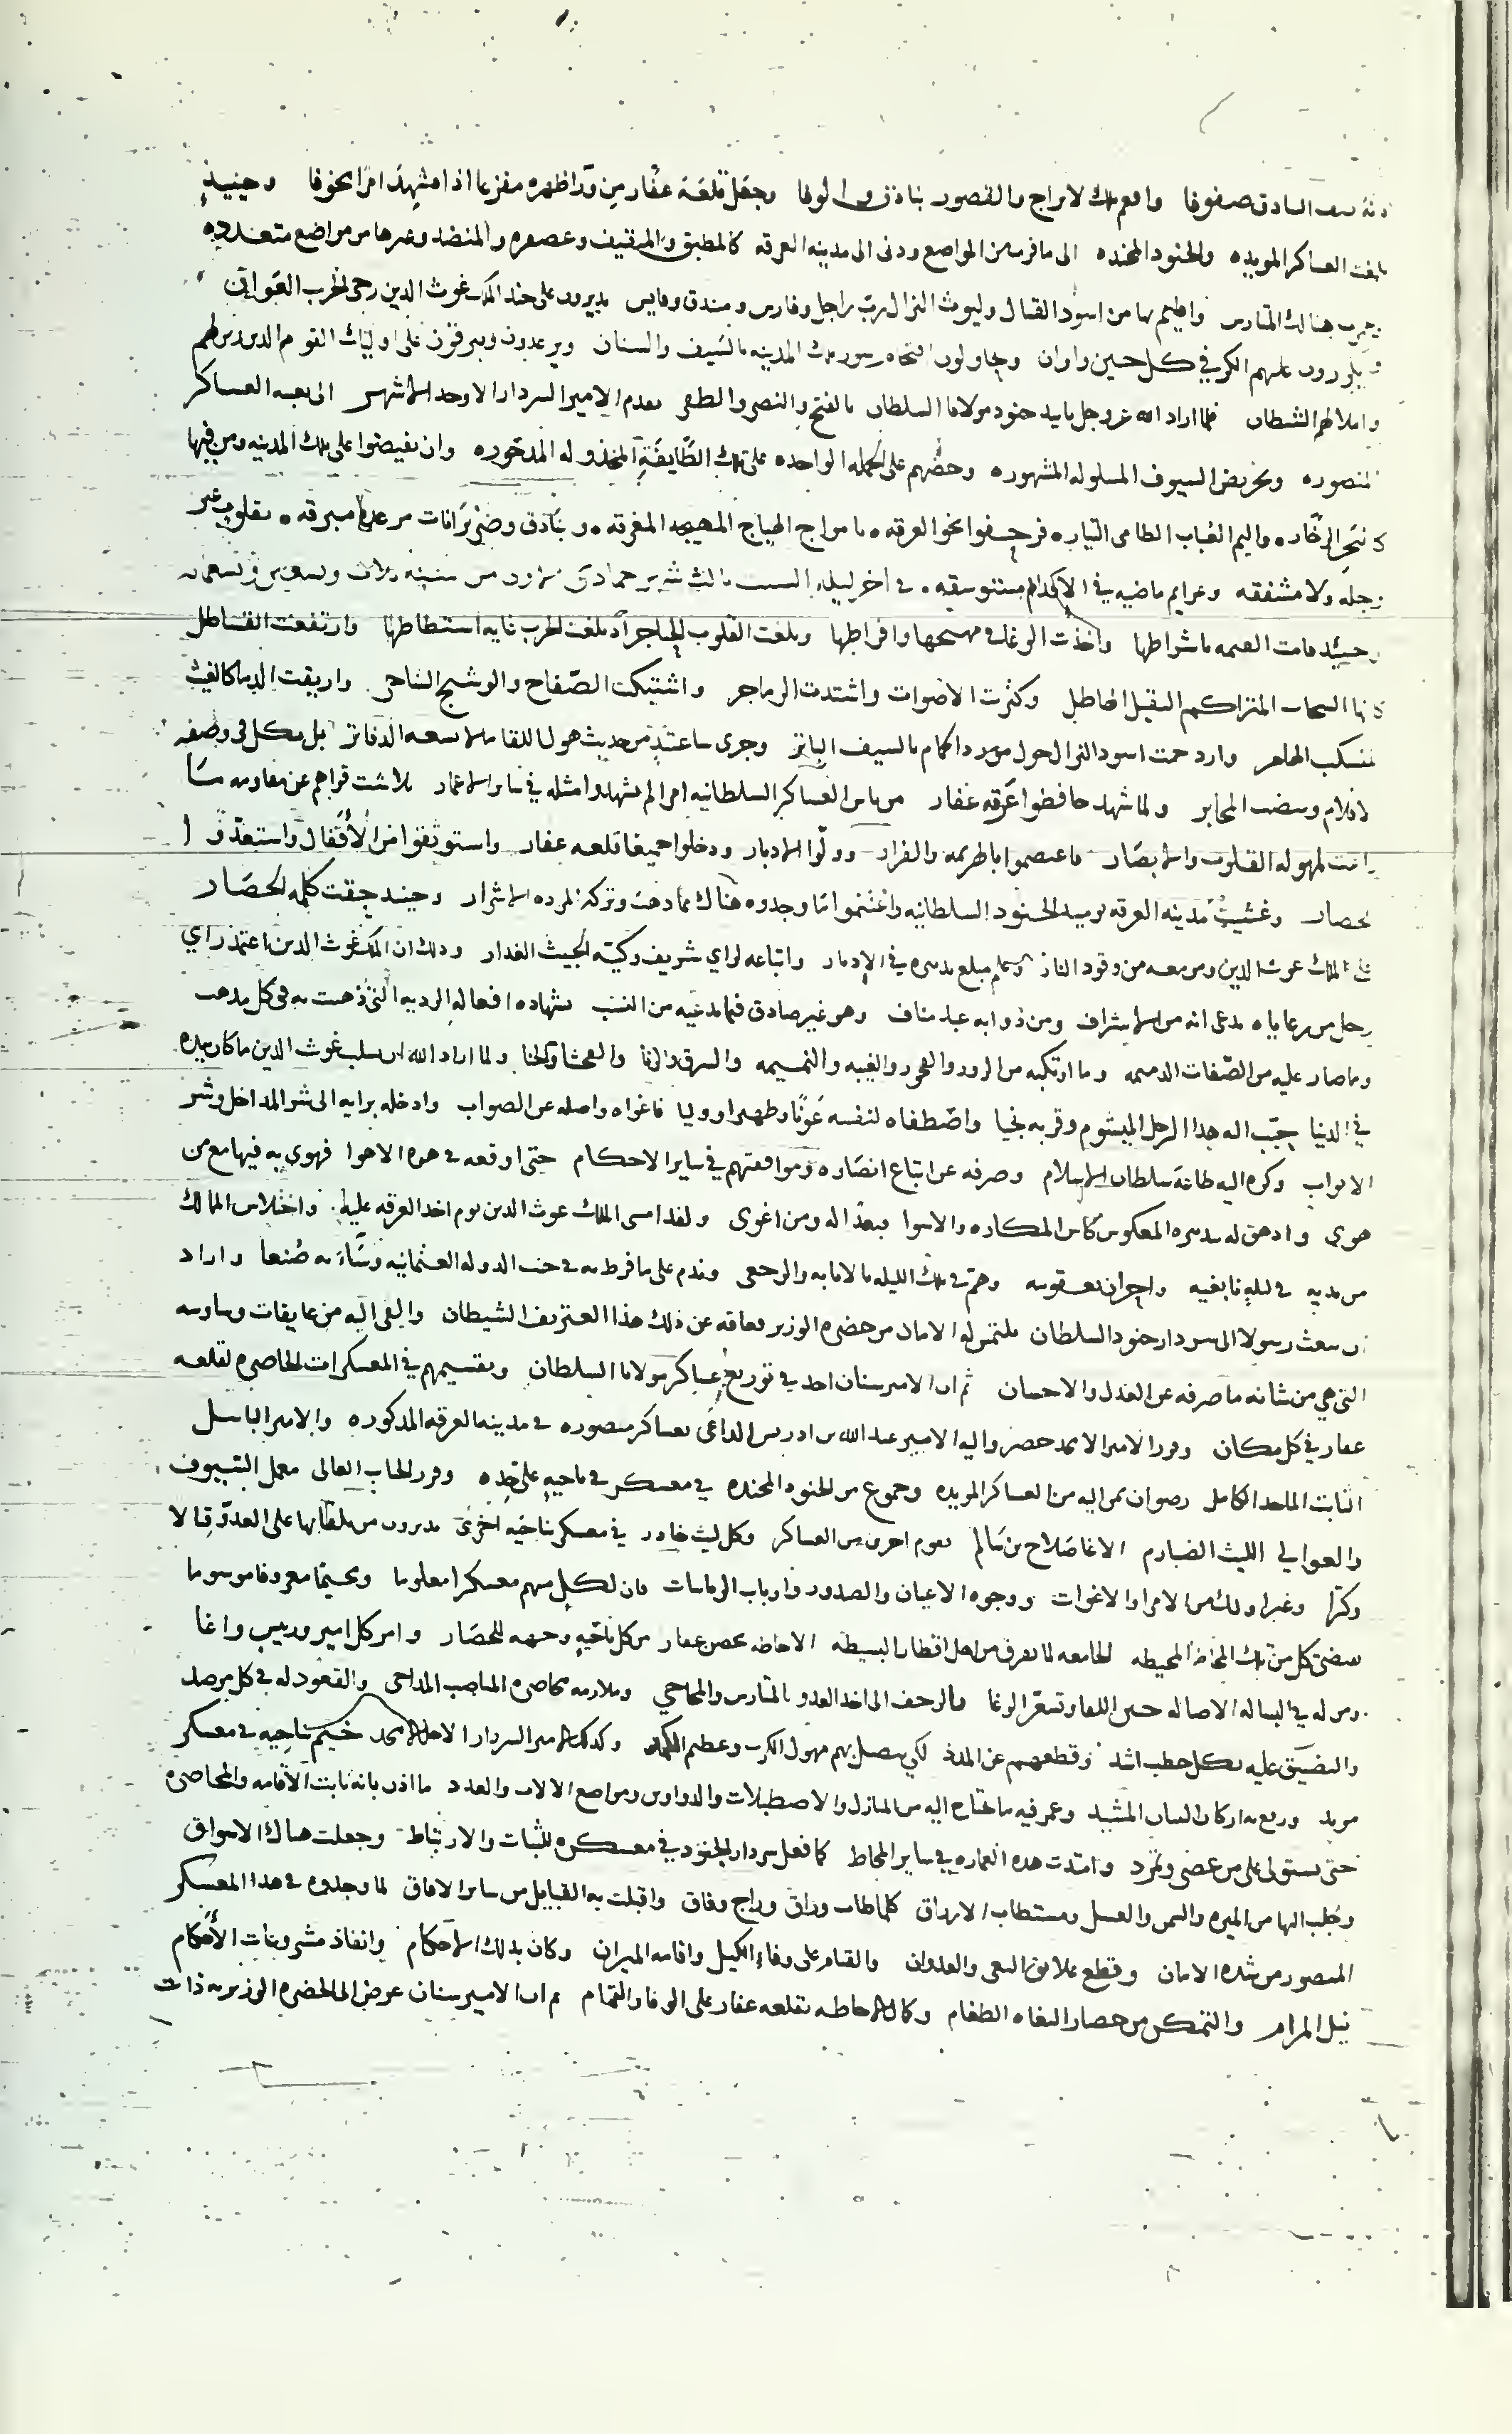 صفوفا وافعم تلك الابراج والقصور بنادق والوفا وجعل قلعة عفار من ورا ظهره مفزعا اذا شهد امرا مخوفا وحينيذ
العساكر المويده والجنود المجنده الى ما قرب من المواضع ودنى الى مدينه العرقه كالمطبق والمرقيف وعصفره والمنضد وغيرها من مواضع متعدده
هنالك المتارس واطلع بها من اسود القتال وليوث النزال رب راجل وفارس يديرون على جند الملك غوث الدين رحى الحرب العوان
عليهم الكر في كل حين واوان ويحاولون سور تلك المدينه بالسيف والسنان ويرعدون ويبرقون على اوليك القوم الذين زين لهم
واملا لهم الشيطان فلما اراد الله عز وجل تاييد جنود مولانا السلطان بالفتح والنصر والظفر تقدم الامير السردار الاوحد الى تعبيه العساكر
المنصوره وتحريض السيوف المسلوله المشهوره وحضهم على الحمله الواحده على تلك الطايفة المخذوله المدحوره وان يفيضوا على تلك المدينه ومن فيها
واليم العباب الطامى التيار فزحفوا نحو العرقه بامواج الهياج المغرقه وبنادق وضربزانات مرعدة مبرقه بقلوب غير
وجله ولا مشفقه وعزايم ماضيه في الاقدام في اخر ليله السبت ثالث شهر جمادى من سنه ثلاث وتسعين وتسعمايه
وحينيد قامت القيمه باشراطها واخذت الوغا في وافراطها وبلغت القلوب الحناجر اذ بلغت الحرب غايه استطاطها وارتفعت القساطل
كانها السحاب المتراكم الثقيل الهاطل وكثرت الاصوات واشتدت الزماجر واشتبكت الصفاح والوشيج الشاجر واريقت الدما كالغيث
المنسكب وازدحمت اسود النزال حول مورد الحمام بالسيف الباتر وجرى ساعتيذ من حديث هول اللقا ما لا تسعه الدفاتر بل تكل في وصفه
الاقلام وتنضب المحابر ولما شهد حافظوا عرقه عفار من باس العساكر السلطانيه امرا لم يشهدوا مثله في ساير الاعمار تلاشت قواهم عن مقاومه ما
لهوله القلوب والابصار فاعتصموا بالهزيمه والفرار وولوا الادبار ودخلوا جميعا قلعه عفار واستوثقوا من الاقفال واستعدوا
لحصار وغشيت مدينه العرقه يوميذ الجنود السلطانيه واغتنموا ما وجدوه هناك مما ذخرت وتركه المرده الاشرار وحينيذ حقت كلمه الحصار
على الملك غوث الدين ومن معه من وقود النار وعلم مبلغ تدبيره في الادبار واتباعه لراي شريف وكيته الخبيث الغدار وذلك ان الملك غوث الدين اعتمد راي
رجل من رعاياه يدعى انه من الاشراف ومن ذوابه عبد مناف وهو غير صادق فيما يدعيه من النسب بشهاده افعاله الرديه التي ذهبت به في كل مذهب
وما صار عليه من الصفات الذميمه وما ارتكبه من الزور والفجور والغيبه والنميمه والسرق والزنا والفحشا والخنا ولما اراد الله ان يسلب غوث الدين ما كان بيده
في الدنيا حبب اليه هذا الرجل الميشوم وقربه نجيا واصطفاه لنفسه عونا وظهيرا ووليا فاغواه واضله عن الصواب وادخله برايه الى شر المداخل وشر
الابواب وكره اليه طاعة سلطان الاسلام وصرفه عن اتباع انصاره وموافقتهم في ساير الاحكام حتى اوقعه في هوه الاهوا فهوى به فيها مع من
هوى وادهق له بتدبيره المعكوس كاس المكاره والاسوا فبعدا له ومن اغوى ولقد امسى الملك غوث الدين يوم اخذ العرقه عليه واختلاس الممالك
من يديه في ليله نابغيه واحزان يعقوبيه وهم في تلك الليله بالانابه والرجعى وندم على ما فرط به في جنب الدوله العثمانيه وساء به صنعا واراد
ان يبعث رسولا الى سردار جنود السلطان ملتمس الامان من حضره الوزير فعاقه عن ذلك هذا العتريف الشيطان والقى اليه من عايقات وساوسه
التى هي من شانه ما صرفه عن العدل والاحسان ثم ان الامير سنان اخذ في توزيع عساكر مولانا السلطان وتقسيمهم في المعسكرات المحاصره لقلعه
عفار في كل مكان وقرر الامير الامجد حضر واليه الامير عبد الله بن ادريس الداعى بعساكر منصوره في مدينه العرقه المذكوره والامير الباسل
الثابت الكامل رضوان بمن اليه من العساكر المويده وجموع من الجنود المجنده في معسكر في ناحيه على حده وقرر الجناب العالى معمل السيوف
والعوالي الليث الضبارم الاغا صلاح بن سالم بقوم اخرين من العساكر وكل ليث خادر في معسكر بناحيه اخرى يديرون من تلقايها على العدو قتالا
وكرا وغير اولئك من الامرا والاغوات ووجوه الاعيان والصدور وارباب الرياسات فان لكل منهم معسكرا معلوما ومخيما معروفا موسوما
كل من تلك المحاط المحيطه الجامعه لما تفرق من اهل اقطار البسيطه الاحاطه بحصن عفار من كل ناحيه وجهه للحصار وامر كل امير وريس واغا
ومن له في البساله الاصاله حين اللقا وتسعر الوغا بالزحف الى اخذ العدو بالمتارس والمحاجي وملازمه محاصره والقعود له في كل مرصد
والتضييق عليه بكل خطب اشد وقطعهم عن المدد لكي يتصل بهم مهول الكرب وعظيم الكمد وكذلك الامير السردار الامجد خيم بناحيه في معسكر
مويد ورفع به اركان البنيان المشيد وعمر فيه ما يحتاج اليه من المنازل والاصطبلات والدواوين ومواضع الالات والعدد ما اذن بانه ثابت الاقامه والمحاصره
حتى يستولى على من عصى وتمرد وامتدت هذه العماره في ساير المحاط كما فعل سردار الجنود في معسكره للثبات والارتباط وجعلت هناك الاسواق
وجلب اليها من الميره والسمن والعسل ومستطاب الارزاق كلما طاب وراق وراج وفاق واقبلت به القبايل من ساير الافاق لما وجدوه في هذا المعسكر
المنصور من شده الامان وقطع علايق البغى والعدوان والقيام على وفاء الكيل واقامه الميزان وكان بذلك الاحكام وانفاذ مشروعات الاحكام
نيل المرام والتمكن من حصار البغاه الطغام وكمال الاحاطه بقلعه عفار على الوفا والتمام ثم ان الامير سنان عرض الى الحضره الوزيريه ذات